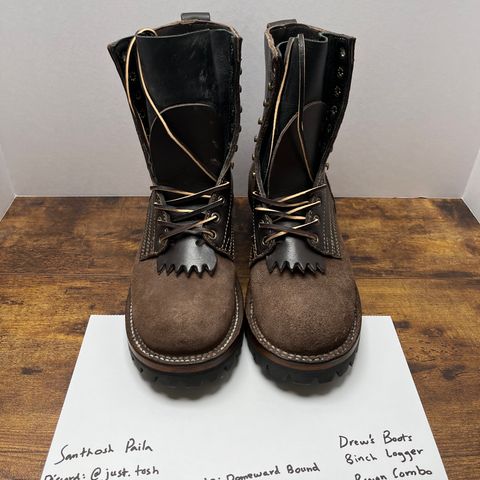 Santhosh Paila
Discord: @just.tosh
Homeward Bound
Drew's Boots
8inch Logger
Combo